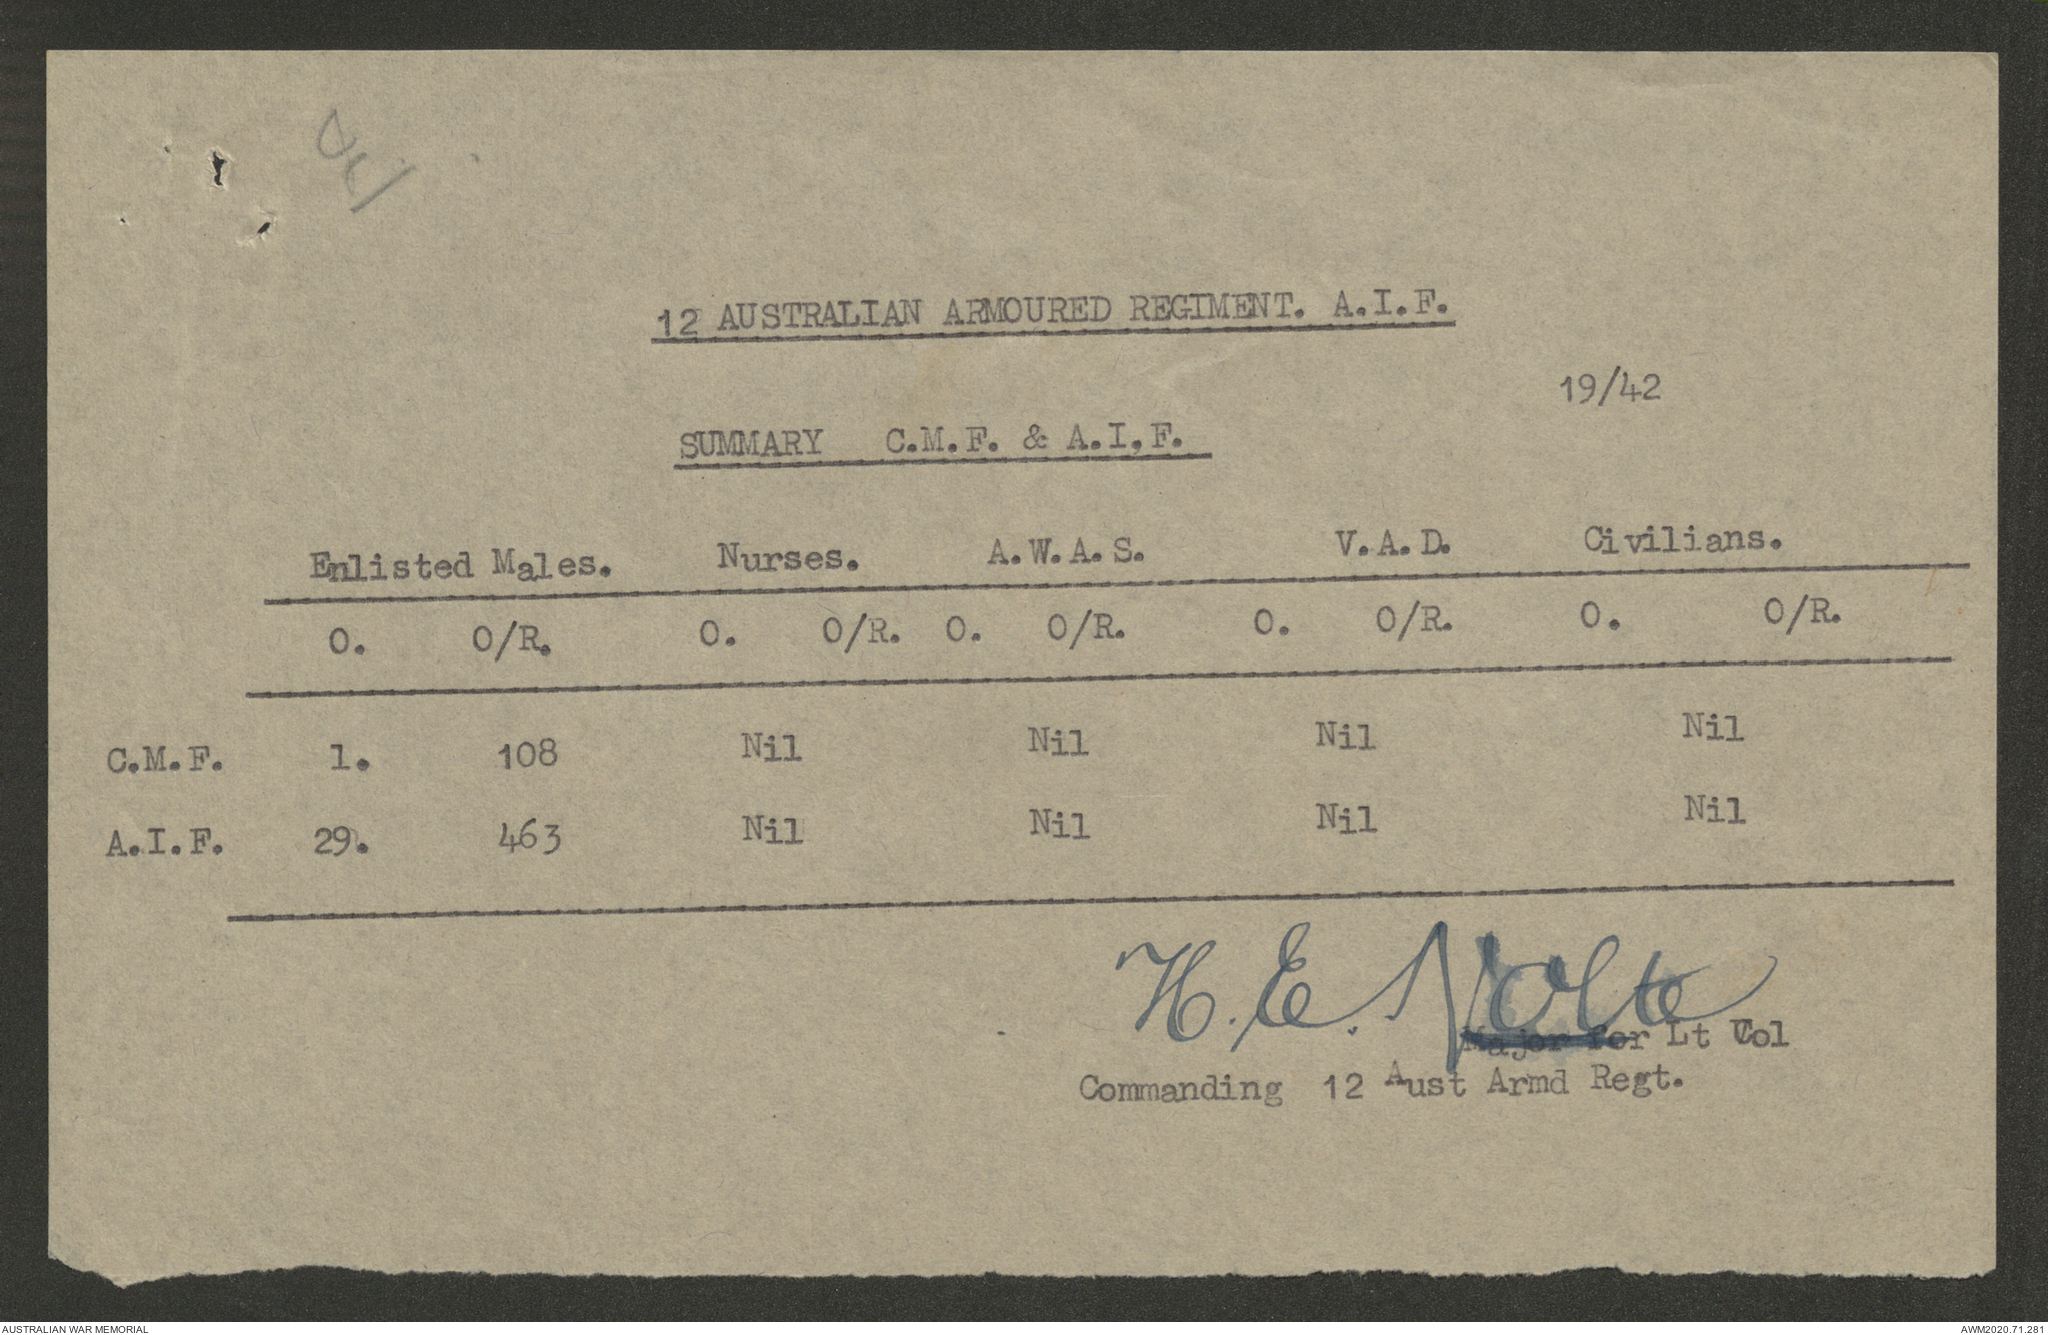 12 AUSTRALIAN ARMOURED REGIMENT. A.I.F.
19/42
SUMMARY C.M.F. & A.I,F.
Enlisted Males. Nurses. A.W.A.S. V.A.D. Civilians.
O. O/R. O. O/R. O. O/R. O. O/R. O. O/R.
C.M.F. 1. 108 Nil Nil Nil Nil
A.I.F. 29. 463 Nil Nil Nil Nil
H.E. Nolte
Major for Lt Col
Commanding 12 Aust Armd Regt.
AUSTRALIAN WAR MEMORIAL AWM2020.71.281